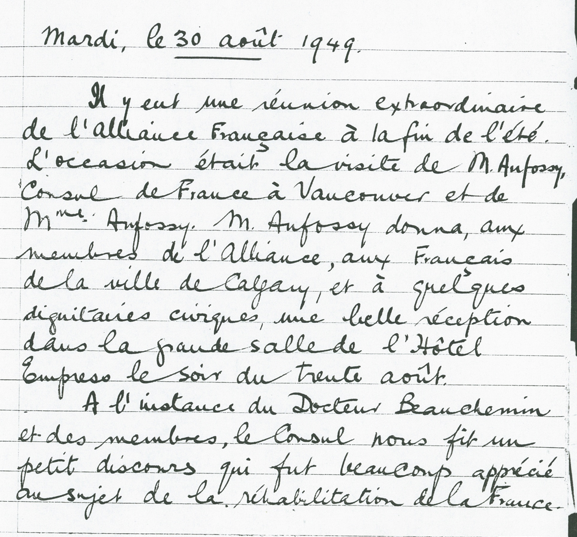 Mardi, le 30 août 1949.
Il y eut une réunion extraordinaire
de l'Alliance Française à la fin de l'été.
L'occasion était la visite de M. Anfossy,
Consul de France à Vancouver et de
Mme. Anfossy. M. Anfossy donna, aux
membres de l'Alliance, aux Français
de la ville de Calgary, et à quelques
dignitaires civiques, une belle réception
dans la grande salle de l'Hôtel
Empress le soir du trente août.
A l'instance du Docteur Beauchemin
et des membres, le Consul nous fit un
petit discours qui fut beaucoup apprécié
au sujet de la réhabilitation de la France.